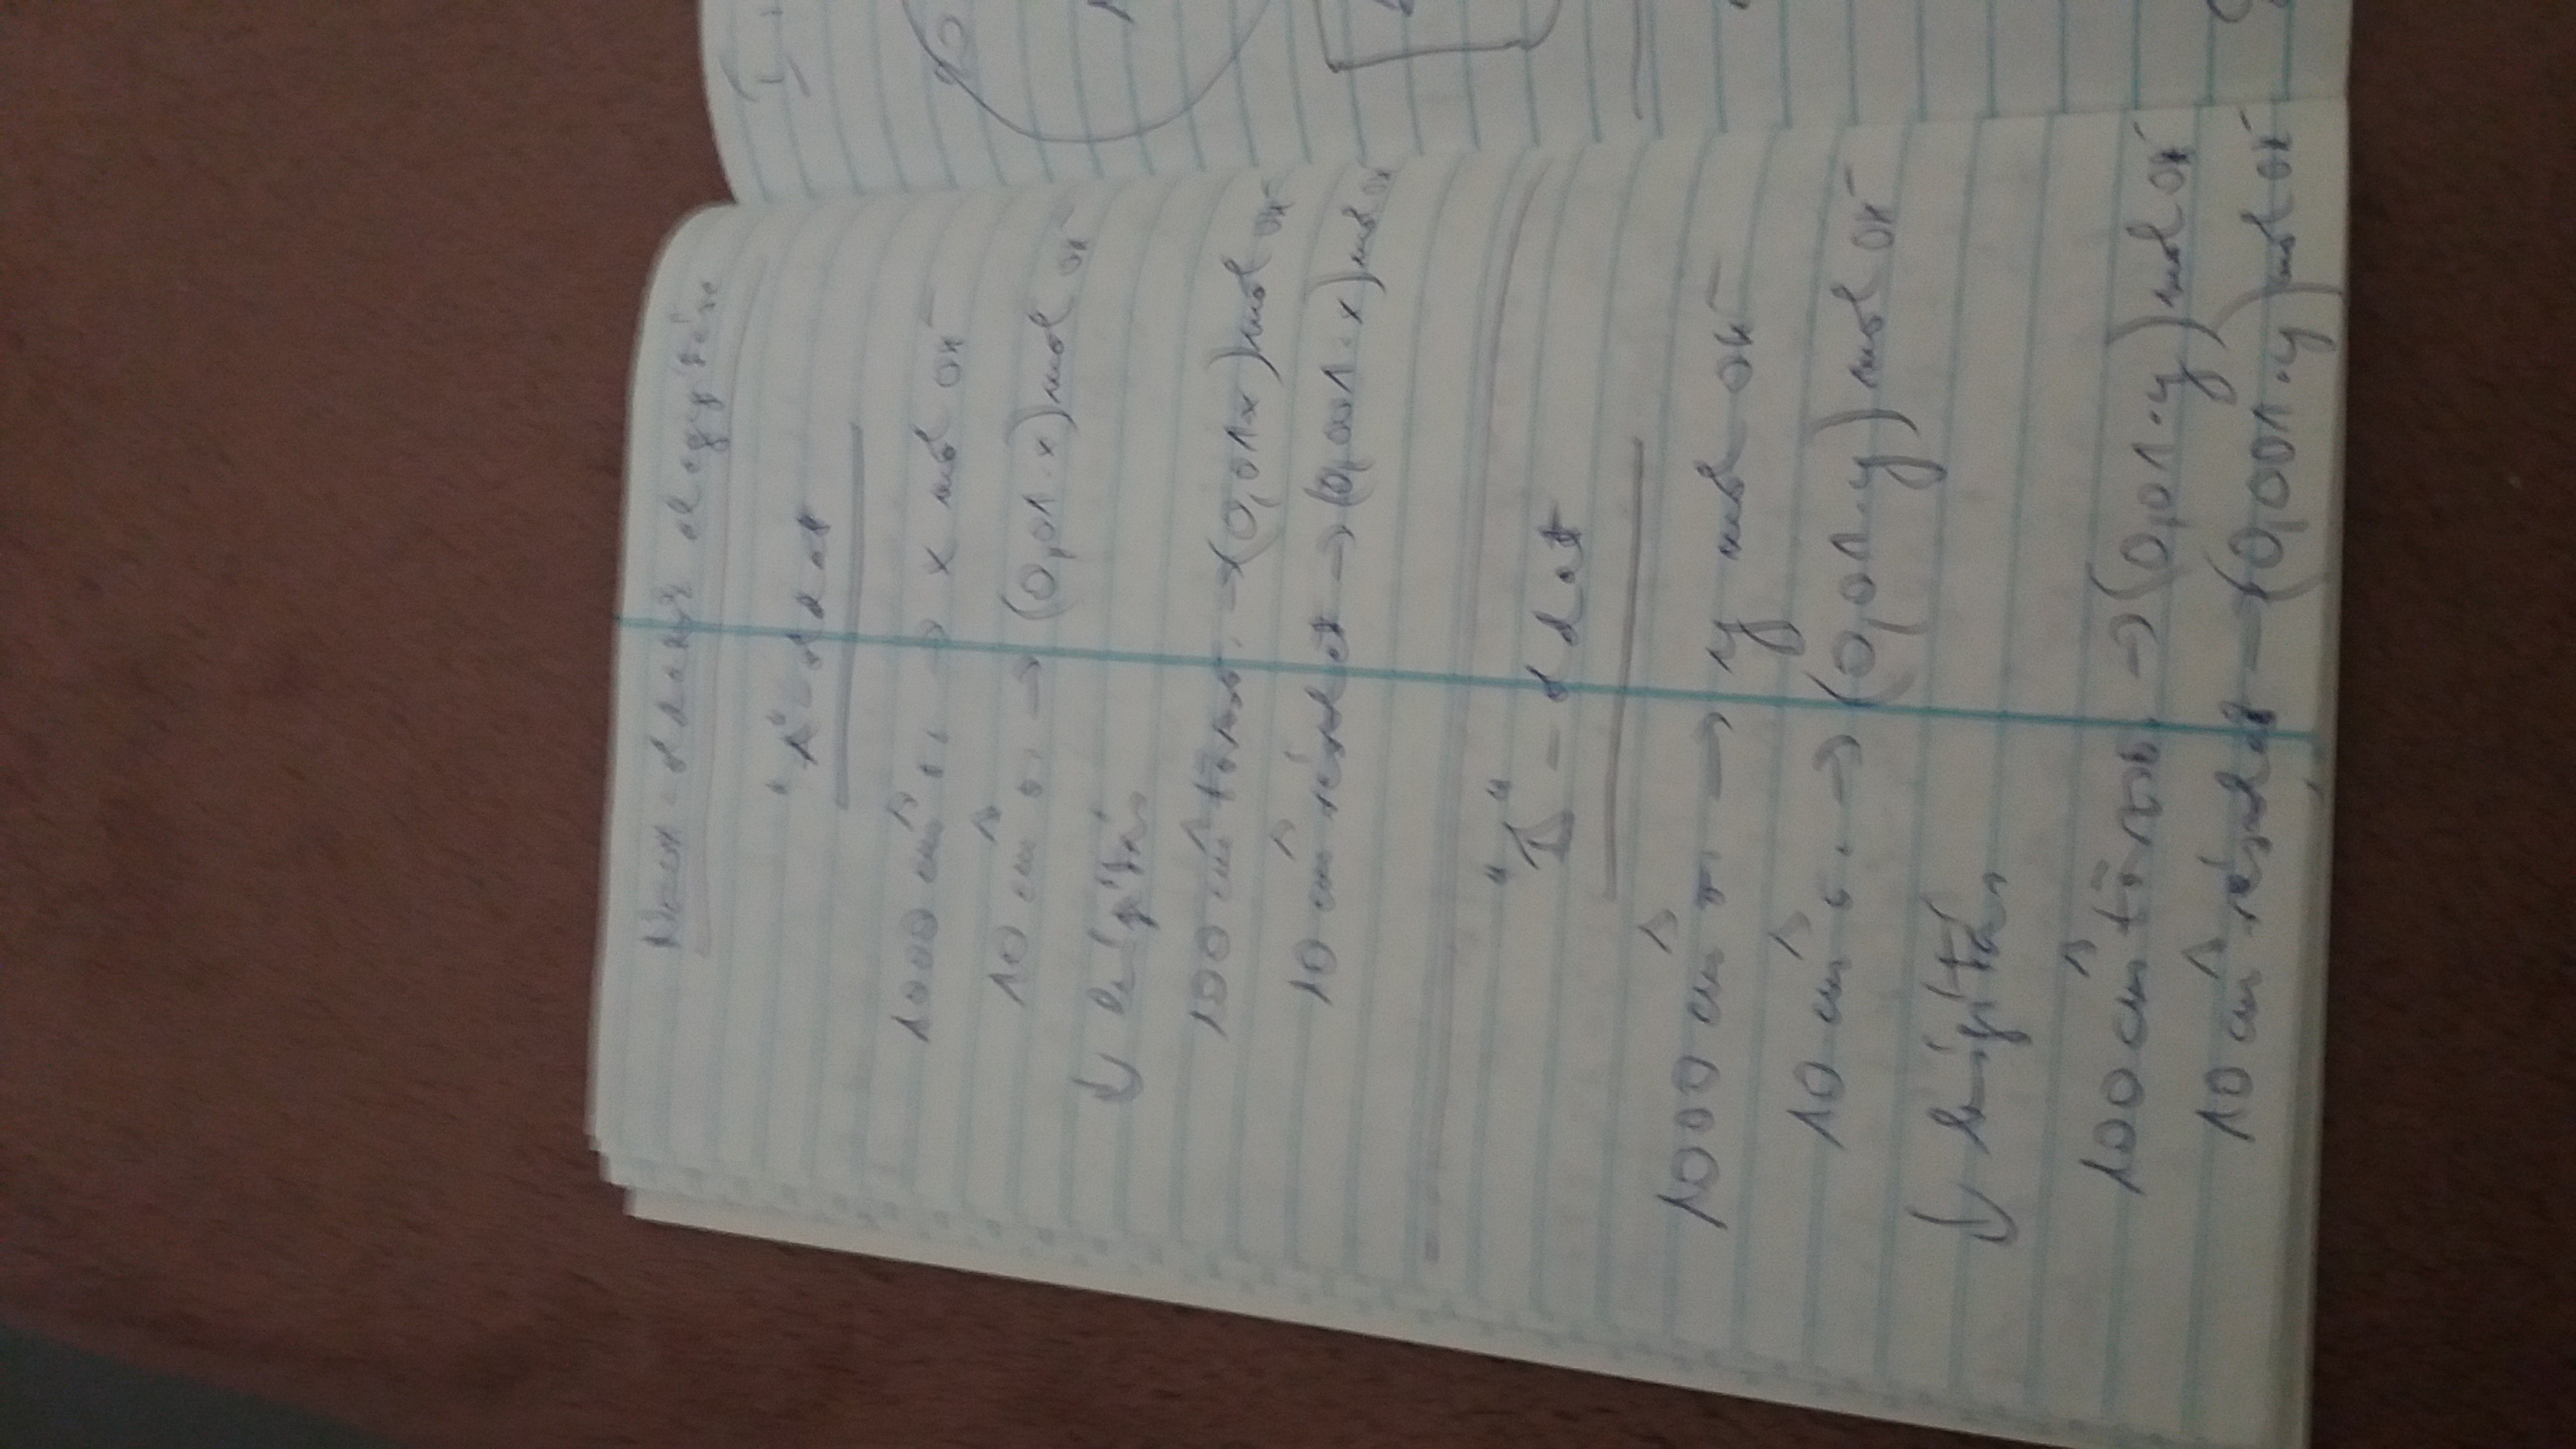 NaOH-oldatok elegyítése
"1"-oldat
1000 cm³ o. → x mol OH⁻
10 cm³ o. → (0,01·x) mol OH⁻
↓ hígítás
100 cm³ → (0,01·x) mol OH⁻
10 cm³ részlet → (0,001·x) mol OH⁻
-oldat
1000 cm³ → y mol OH⁻
10 cm³ o. → (0,01·y) mol OH⁻
↓ hígítás
100 cm³ → (0,01·y) mol OH⁻
10 cm³ részlet → (0,001·y) mol OH⁻